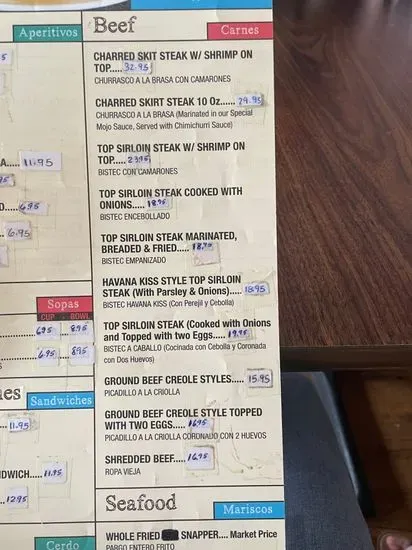 Aperitivos
A.....11.95
D.....6.95
6.95
Sopas
CUP BOWL
6.95 8.95
6.95 8.95
Sandwiches
11.95
DWICH....11.95
12.95
Cerdo
Beef
Carnes
CHARRED SKIT STEAK W/ SHRIMP ON
TOP..... 32.95
CHURRASCO A LA BRASA CON CAMARONES
CHARRED SKIRT STEAK 10 Oz...... 29.95
CHURRASCO A LA BRASA (Marinated in our Special
Mojo Sauce, Served with Chimichurri Sauce)
TOP SIRLOIN STEAK W/ SHRIMP ON
TOP..... 23.95
BISTEC CON CAMARONES
TOP SIRLOIN STEAK COOKED WITH
ONIONS..... 18.95
BISTEC ENCEBOLLADO
TOP SIRLOIN STEAK MARINATED,
BREADED & FRIED..... 18.95
BISTEC EMPANIZADO
HAVANA KISS STYLE TOP SIRLOIN
STEAK (With Parsley & Onions)..... 18.95
BISTEC HAVANA KISS (Con Perejil y Cebolla)
TOP SIRLOIN STEAK (Cooked with Onions
and Topped with two Eggs.... 19.95
BISTEC A CABALLO (Cocinada con Cebolla y Coronada
con Dos Huevos)
GROUND BEEF CREOLE STYLES..... 15.95
PICADILLO A LA CRIOLLA
GROUND BEEF CREOLE STYLE TOPPED
WITH TWO EGGS..... 16.95
PICADILLO A LA CRIOLLA CORONADO CON 2 HUEVOS
SHREDDED BEEF..... 16.95
ROPA VIEJA
Seafood
Mariscos
WHOLE FRIED SNAPPER.... Market Price
PARGO ENTERO FRITO